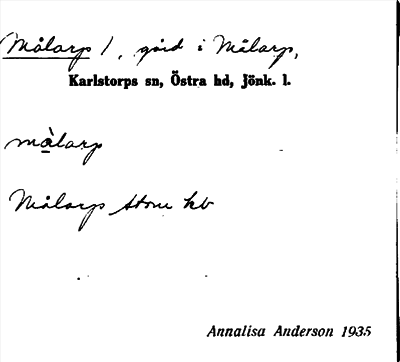 (Målarp), gård i Målarp,
Karlstorps sn, Östra hd, Jönk. l.
mà̱larp
Målarps Stom kb
Annalisa Anderson 1935